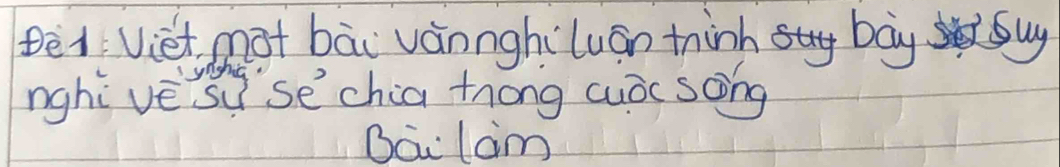 Đề 1: Viết một bài văn nghị luận trình bày suy
nghĩ về ý nghĩa sự sẻ chia trong cuộc sống
Bài làm